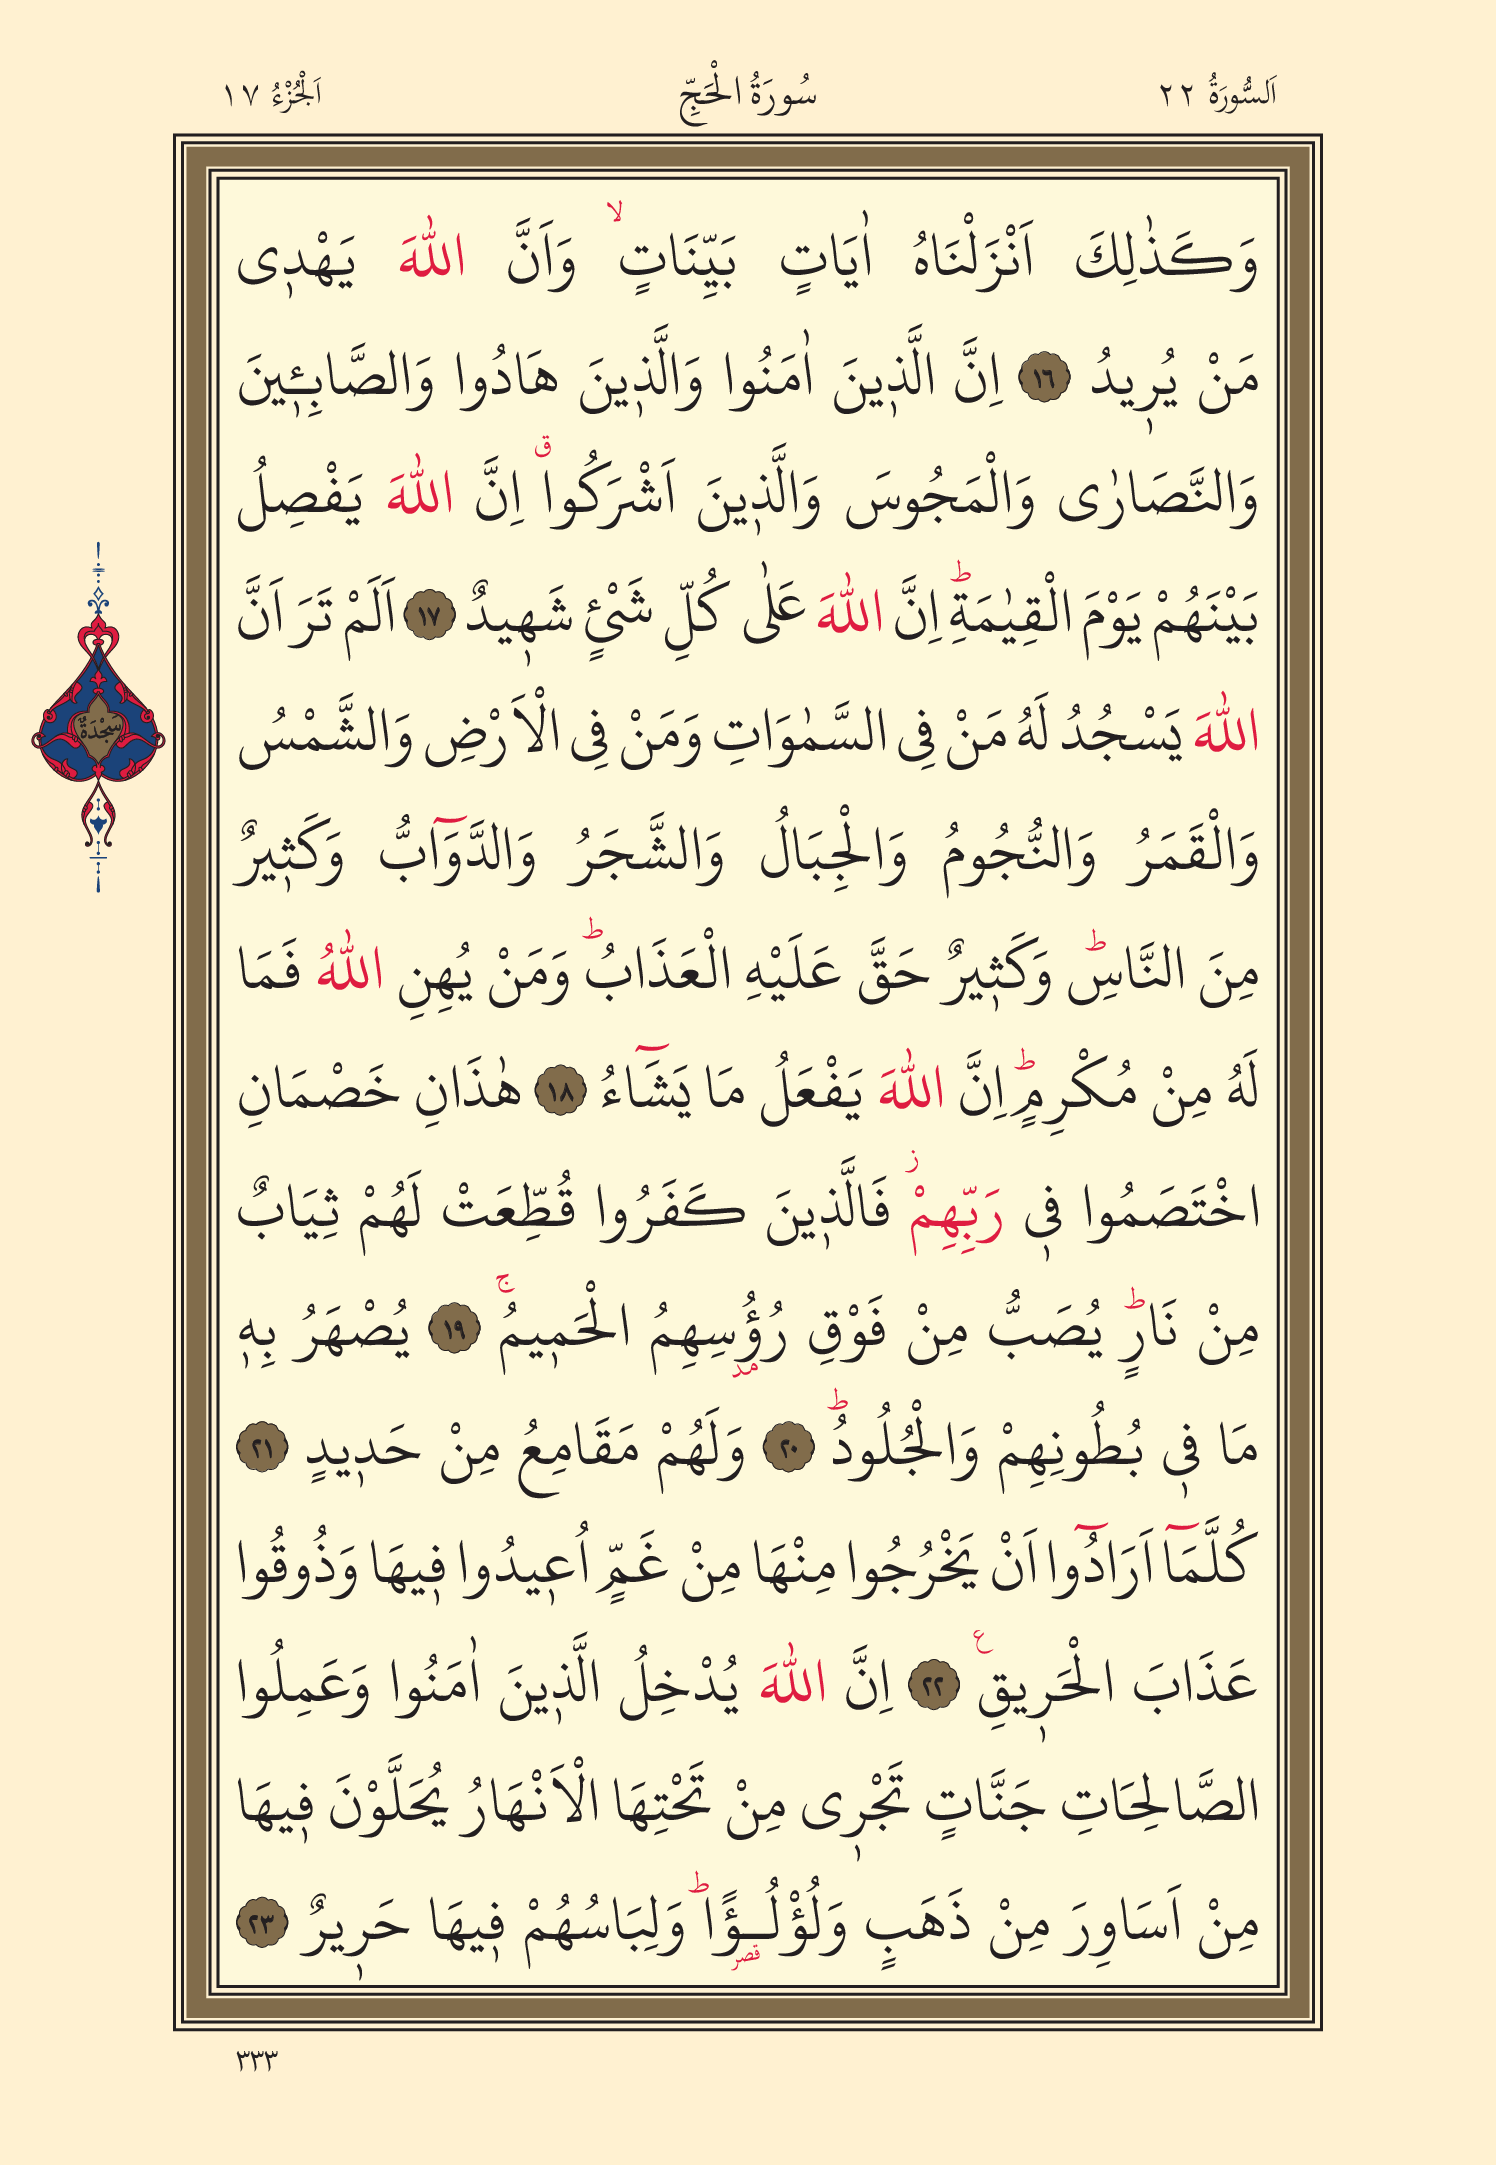 اَلسُّورَةُ ٢٢ سُورَةُ الْحَجِّ اَلْجُزْءُ ١٧
وَكَذٰلِكَ اَنْزَلْنَاهُ اٰيَاتٍ بَيِّنَاتٍۙ وَاَنَّ اللّٰهَ يَهْدٖى
مَنْ يُرٖيدُ ١٦ اِنَّ الَّذٖينَ اٰمَنُوا وَالَّذٖينَ هَادُوا وَالصَّابِـٖٔينَ
وَالنَّصَارٰى وَالْمَجُوسَ وَالَّذٖينَ اَشْرَكُواࣗ اِنَّ اللّٰهَ يَفْصِلُ
بَيْنَهُمْ يَوْمَ الْقِيٰمَةِؕ اِنَّ اللّٰهَ عَلٰى كُلِّ شَیْءٍ شَهٖيدٌ ١٧ اَلَمْ تَرَ اَنَّ
اللّٰهَ يَسْجُدُ لَهُ مَنْ فِى السَّمٰوَاتِ وَمَنْ فِى الْاَرْضِ وَالشَّمْسُ
وَالْقَمَرُ وَالنُّجُومُ وَالْجِبَالُ وَالشَّجَرُ وَالدَّوَآبُّ وَكَثٖيرٌ
مِنَ النَّاسِؕ وَكَثٖيرٌ حَقَّ عَلَيْهِ الْعَذَابُؕ وَمَنْ يُهِنِ اللّٰهُ فَمَا
لَهُ مِنْ مُكْرِمٍؕ اِنَّ اللّٰهَ يَفْعَلُ مَا يَشَٓاءُ ١٨ هٰذَانِ خَصْمَانِ
اخْتَصَمُوا فٖى رَبِّهِمْؗ فَالَّذٖينَ كَفَرُوا قُطِّعَتْ لَهُمْ ثِيَابٌ
مِنْ نَارٍؕ يُصَبُّ مِنْ فَوْقِ رُؤُسِهِمُ مد الْحَمٖيمُۚ ١٩ يُصْهَرُ بِهٖ
مَا فٖى بُطُونِهِمْ وَالْجُلُودُؕ ٢٠ وَلَهُمْ مَقَامِعُ مِنْ حَدٖيدٍ ٢١
كُلَّمَٓا اَرَادُٓوا اَنْ يَخْرُجُوا مِنْهَا مِنْ غَمٍّ اُعٖيدُوا فٖيهَا وَذُوقُوا
عَذَابَ الْحَرٖيقِ ع ٢٢ اِنَّ اللّٰهَ يُدْخِلُ الَّذٖينَ اٰمَنُوا وَعَمِلُوا
سَجْدَةٌ
الصَّالِحَاتِ جَنَّاتٍ تَجْرٖى مِنْ تَحْتِهَا الْاَنْهَارُ يُحَلَّوْنَ فٖيهَا
مِنْ اَسَاوِرَ مِنْ ذَهَبٍ وَلُؤْلُـؤًاؕ قصر وَلِبَاسُهُمْ فٖيهَا حَرٖيرٌ ٢٣
٣٣٣